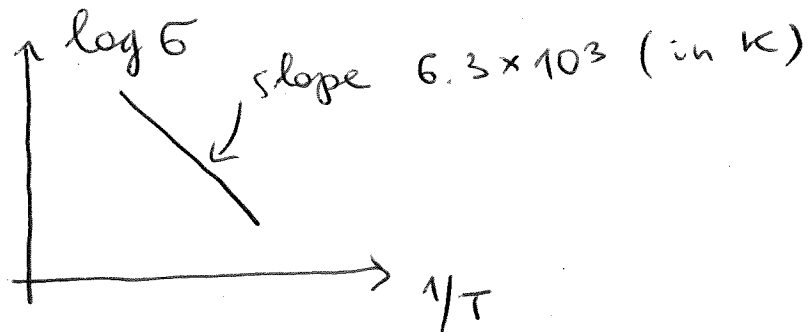 log σ
slope 6.3×10³ (in K)
1/T